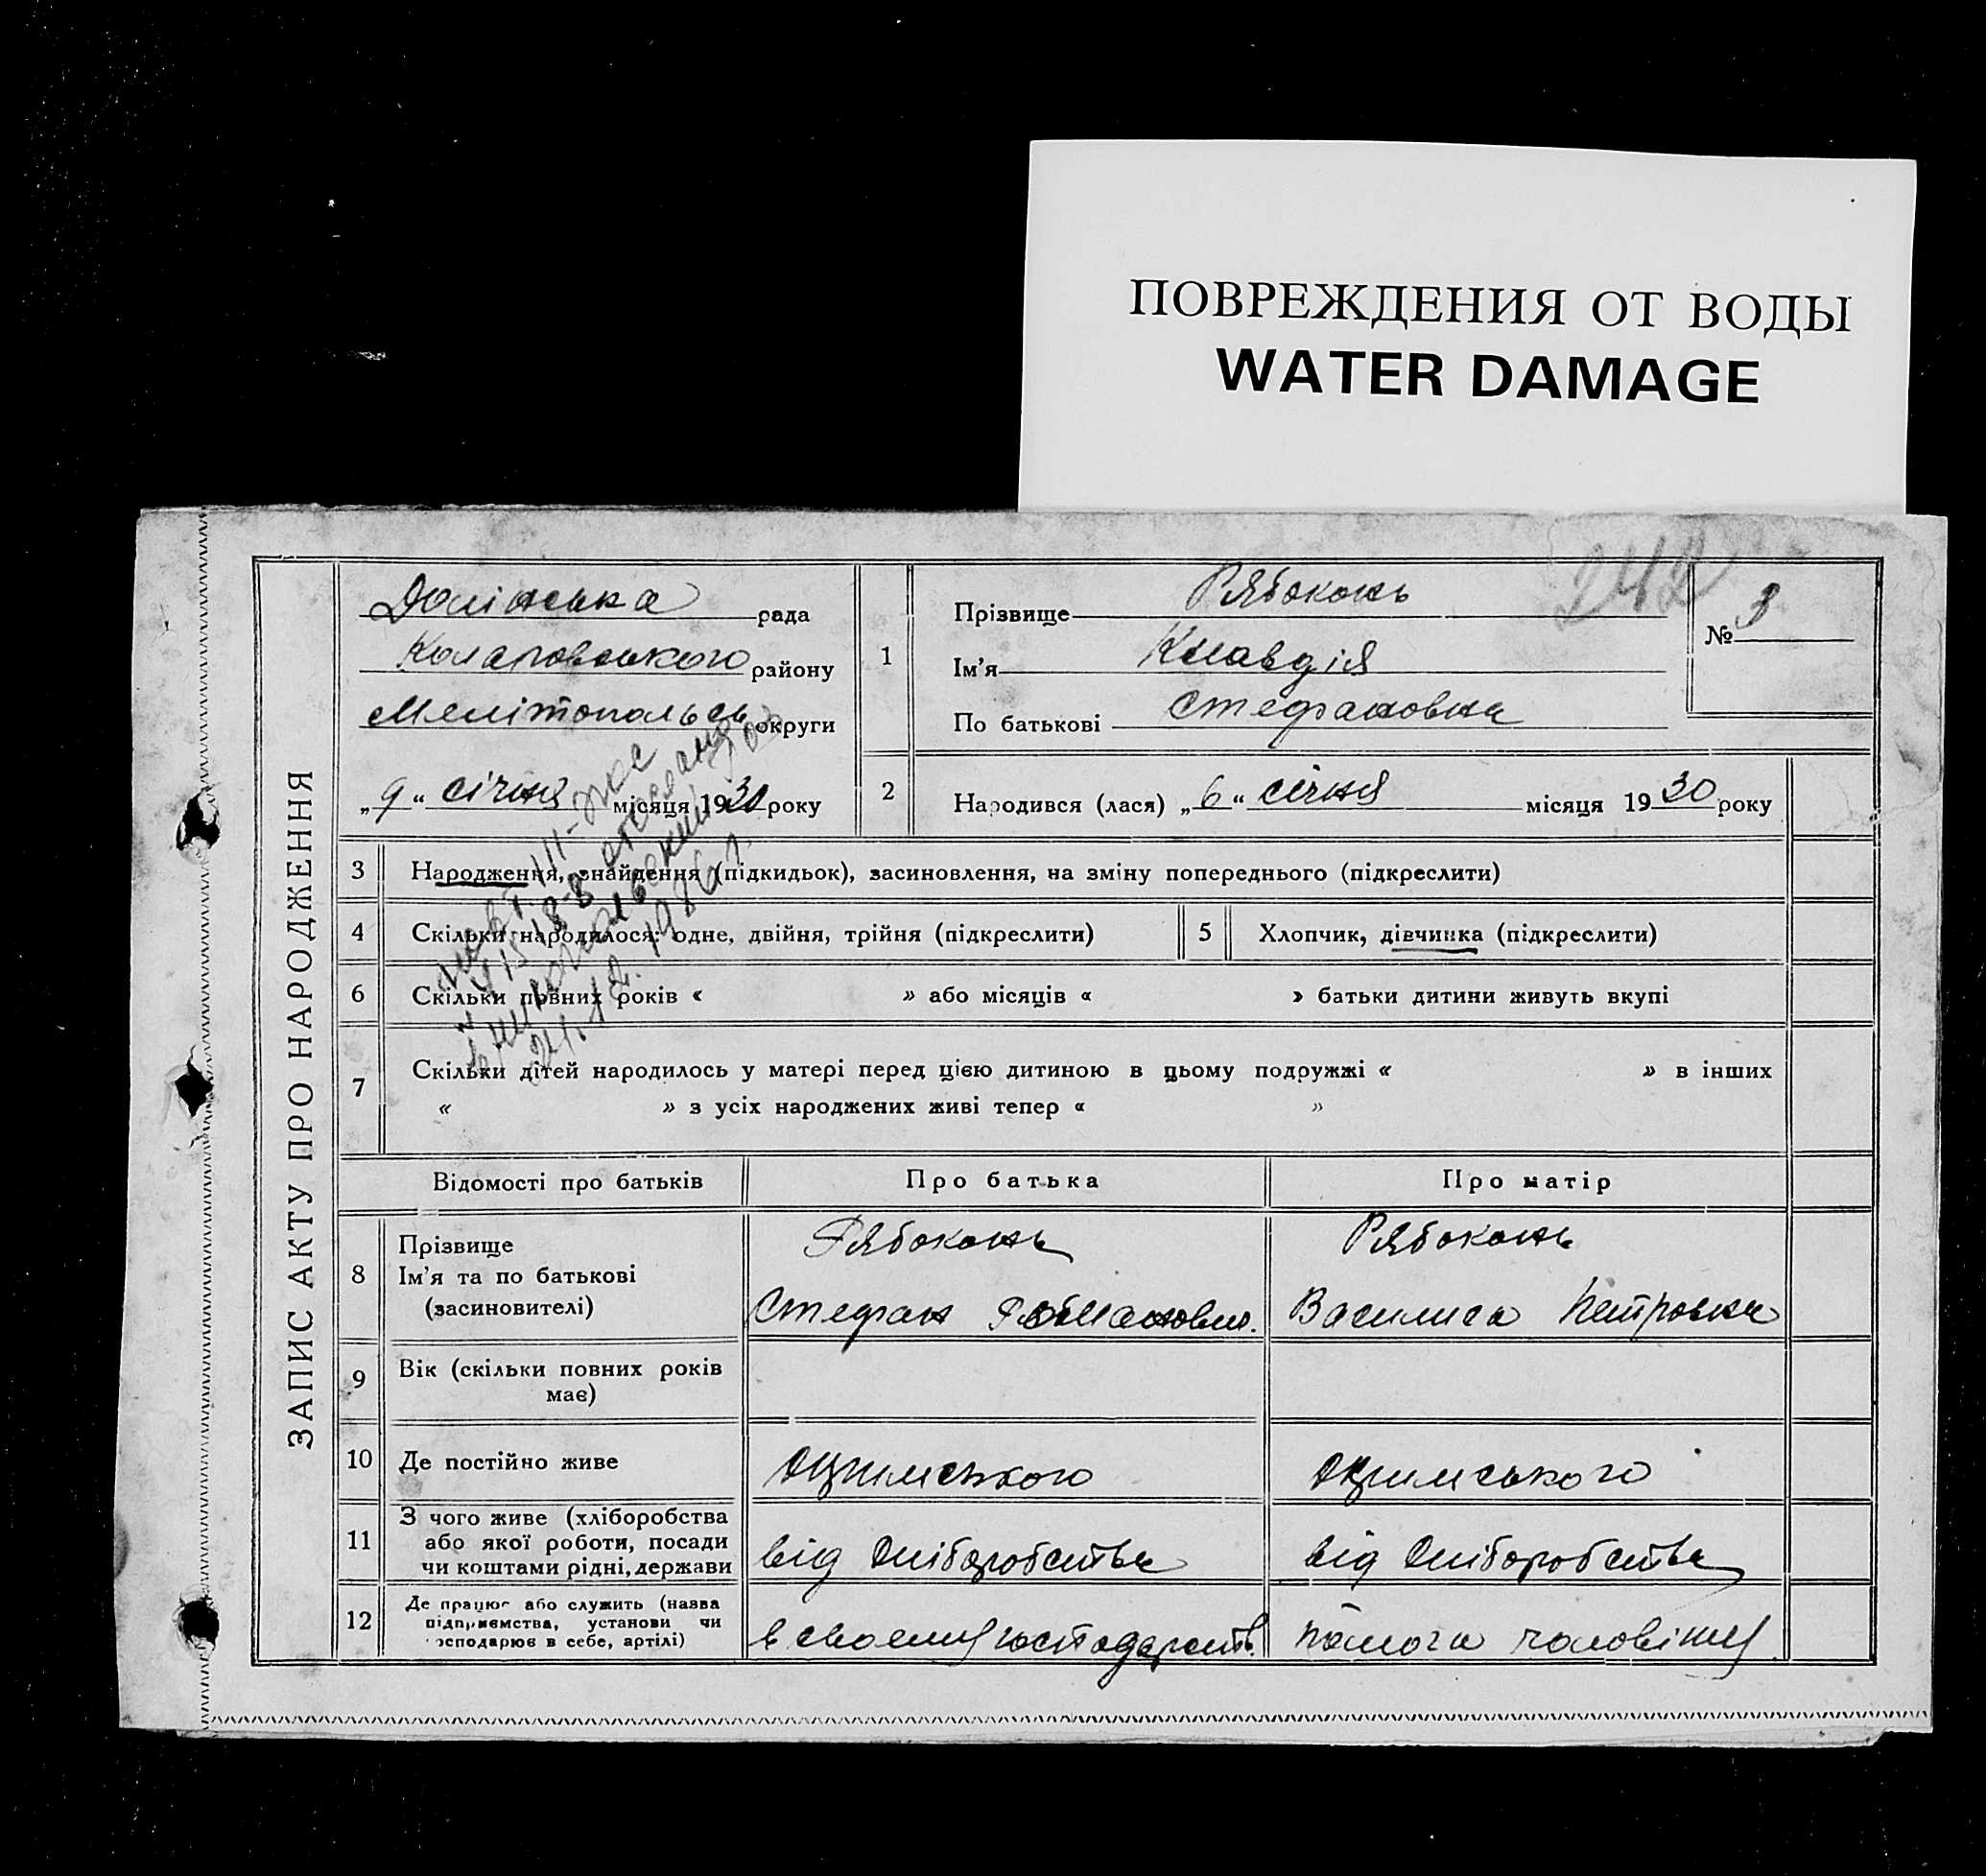 ПОВРЕЖДЕНИЯ ОТ ВОДЫ
WATER DAMAGE
242
ЗАПИС АКТУ ПРО НАРОДЖЕННЯ
Долінська рада
Коларовського району
Мелітопольсь округи
„9“ січня місяця 1930 року
1
Прізвище Рябоконь
Ім'я Клавдія
По батькові Стефановна
№ 3
2
Народився (лася) „6“ січня місяця 1930 року
3 Народження, знайдення (підкидьок), засиновлення, на зміну попереднього (підкреслити)
4 Скільки народилося: одне, двійня, трійня (підкреслити)
5 Хлопчик, дівчинка (підкреслити)
6 Скільки повних років « » або місяців « » батьки дитини живуть вкупі
7 Скільки дітей народилось у матері перед цією дитиною в цьому подружжі « » в інших
« » з усіх народжених живі тепер « »
24.12.1986 г.
Відомості про батьків Про батька Про матір
8 Прізвище Рябоконь Рябоконь
Ім'я та по батькові
(засновителі) Стефан Романович. Василиса Петровна
9 Вік (скільки повних років
має)
10 Де постійно живе
11 З чого живе (хліборобства
або якої роботи, посади
чи коштами рідні, держави від Хліборобства від Хліборобства
12 Де працює або служить (назва
підприємства, установи чи
господарює в себе, артілі) в своему господарств. помога чоловіку